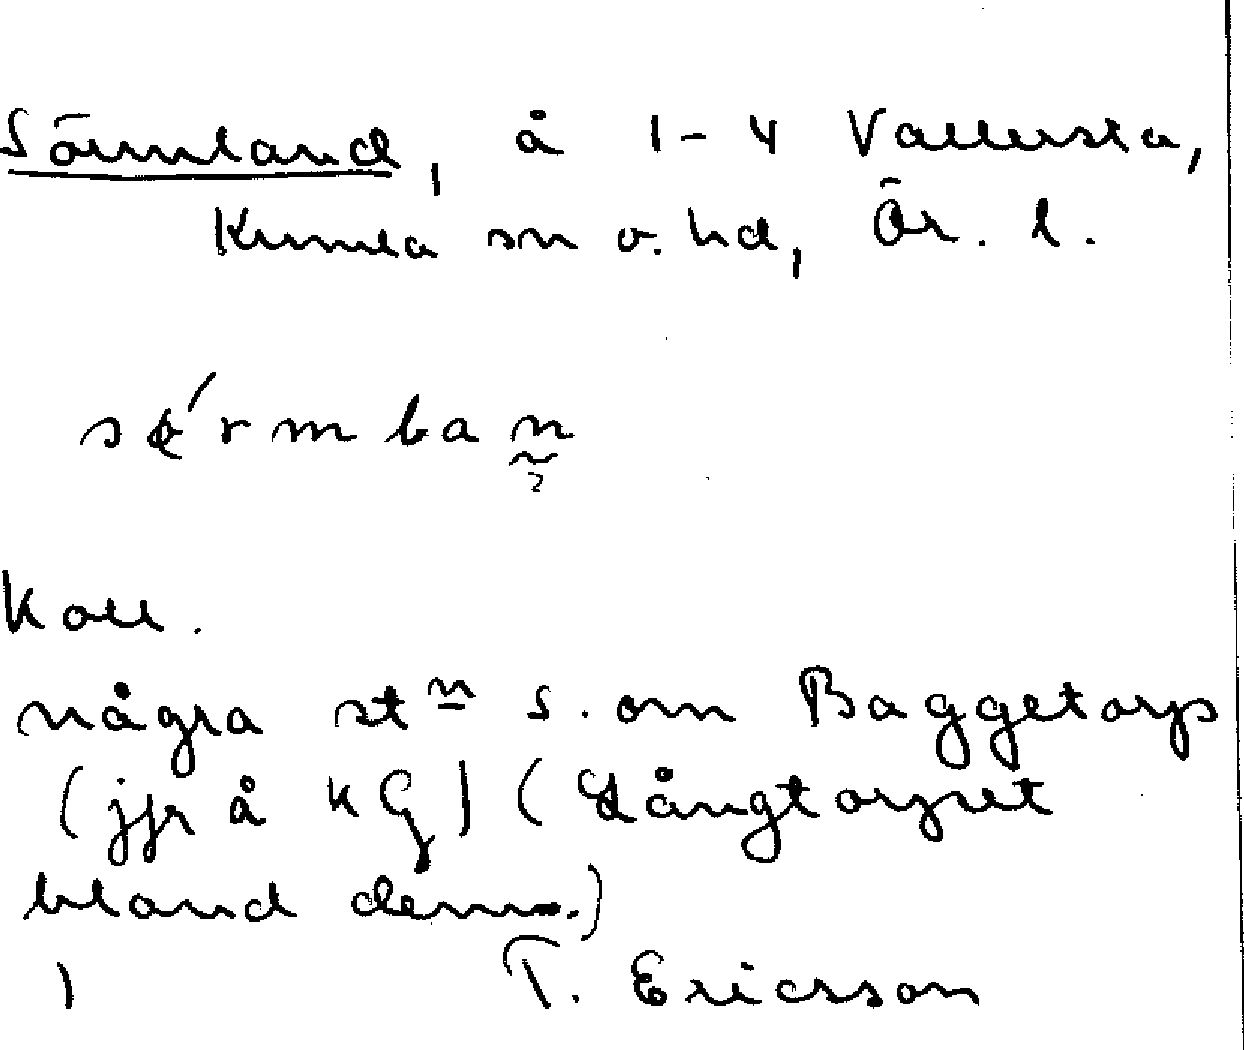 Sörmland, å 1-4 Vallersta,
Kumla sn o. hd, Ör. l.
Koll.
några stn s. om Baggetorps
(jfr å KG) (Långtorpset
bland dem.)
T. Ericsson